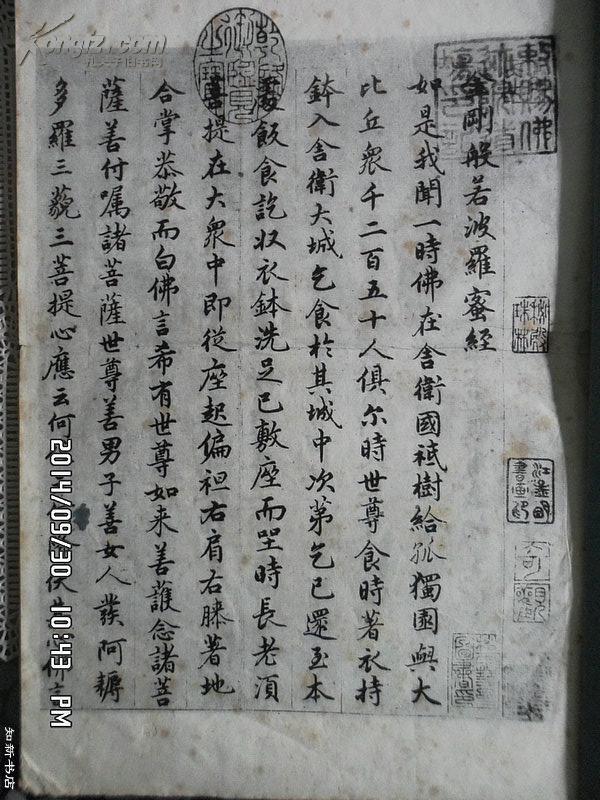 金剛般若波羅蜜經
如是我聞一時佛在舍衛國祇樹給孤獨園與大
比丘衆千二百五十人俱尔時世尊食時著衣持
鉢入舍衛大城乞食於其城中次第乞已還至本
處飯食訖収衣鉢洗足已敷座而坐時長老湏
菩提在大衆中即從座起偏袒右肩右膝著地
合掌恭敬而白佛言希有世尊如来善護念諸菩
薩善付嘱諸菩薩世尊善男子善女人發阿耨
多羅三藐三菩提心應云何
乾隆御覽之寶
Kongfz.com
孔夫子旧书网
2014/09/30 10:43 PM
知新书店